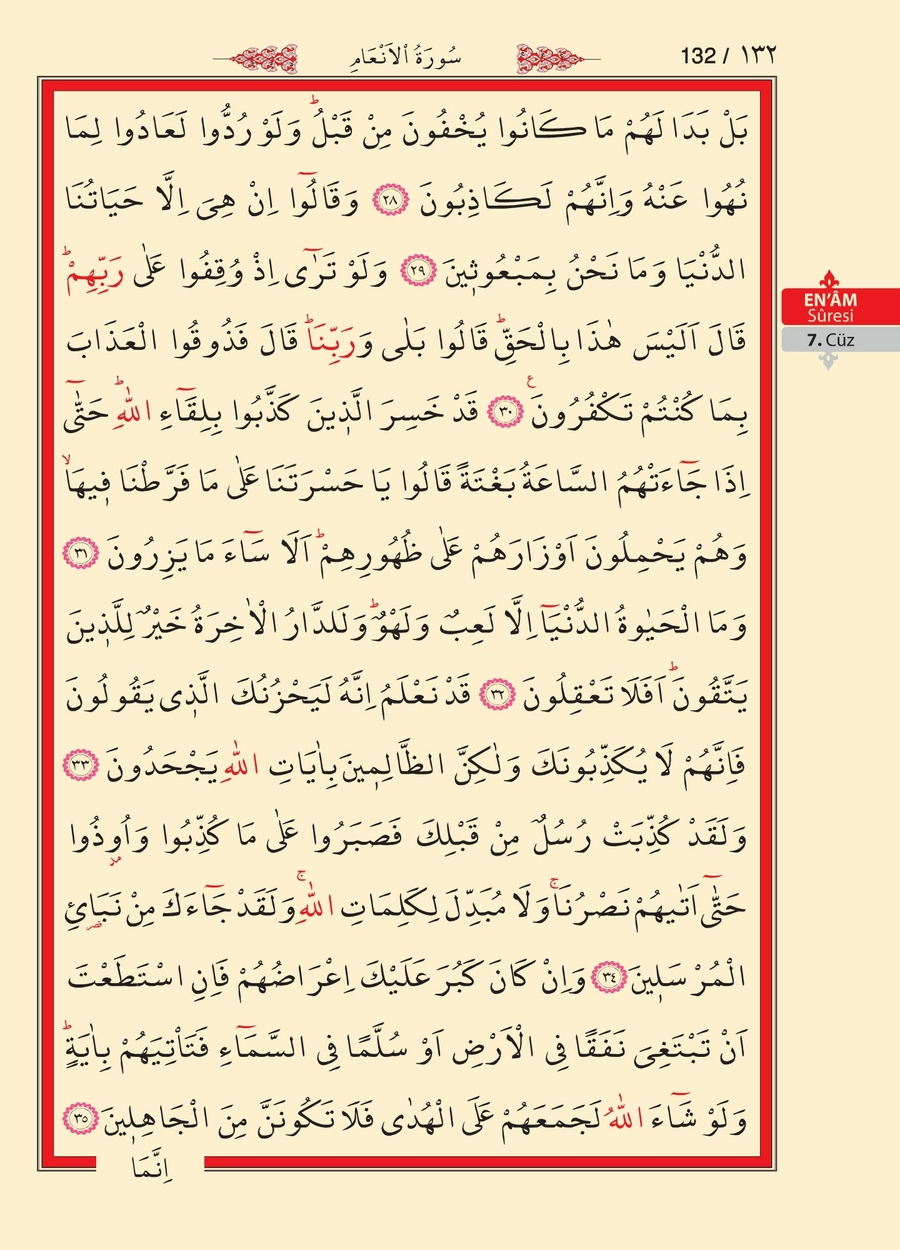 سُورَةُ الْاَنْعَامِ
132 / ١٣٢
بَلْ بَدَا لَهُمْ مَا كَانُوا يُخْفُونَ مِنْ قَبْلُۜ وَلَوْ رُدُّوا لَعَادُوا لِمَا
نُهُوا عَنْهُ وَاِنَّهُمْ لَكَاذِبُونَ ﴿٢٨﴾ وَقَالُٓوا اِنْ هِيَ اِلَّا حَيَاتُنَا
الدُّنْيَا وَمَا نَحْنُ بِمَبْعُوث۪ينَ ﴿٢٩﴾ وَلَوْ تَرٰٓى اِذْ وُقِفُوا عَلٰى رَبِّهِمْۜ
قَالَ اَلَيْسَ هٰذَا بِالْحَقِّۜ قَالُوا بَلٰى وَرَبِّنَاۜ قَالَ فَذُوقُوا الْعَذَابَ
بِمَا كُنْتُمْ تَكْفُرُونَ ﴿٣٠﴾ ع قَدْ خَسِرَ الَّذ۪ينَ كَذَّبُوا بِلِقَٓاءِ اللّٰهِۜ حَتّٰٓى
اِذَا جَٓاءَتْهُمُ السَّاعَةُ بَغْتَةً قَالُوا يَا حَسْرَتَنَا عَلٰى مَا فَرَّطْنَا ف۪يهَاۙ
وَهُمْ يَحْمِلُونَ اَوْزَارَهُمْ عَلٰى ظُهُورِهِمْۜ اَلَا سَٓاءَ مَا يَزِرُونَ ﴿٣١﴾
وَمَا الْحَيٰوةُ الدُّنْيَٓا اِلَّا لَعِبٌ وَلَهْوٌۜ وَلَلدَّارُ الْاٰخِرَةُ خَيْرٌ لِلَّذ۪ينَ
يَتَّقُونَۜ اَفَلَا تَعْقِلُونَ ﴿٣٢﴾ قَدْ نَعْلَمُ اِنَّهُ لَيَحْزُنُكَ الَّذ۪ي يَقُولُونَ
فَاِنَّهُمْ لَا يُكَذِّبُونَكَ وَلٰكِنَّ الظَّالِم۪ينَ بِاٰيَاتِ اللّٰهِ يَجْحَدُونَ ﴿٣٣﴾
وَلَقَدْ كُذِّبَتْ رُسُلٌ مِنْ قَبْلِكَ فَصَبَرُوا عَلٰى مَا كُذِّبُوا وَاُو۫ذُوا
حَتّٰٓى اَتٰيهُمْ نَصْرُنَاۚ وَلَا مُبَدِّلَ لِكَلِمَاتِ اللّٰهِۚ وَلَقَدْ جَٓاءَكَ مِنْ نَبَا۬ئِ
الْمُرْسَل۪ينَ ﴿٣٤﴾ وَاِنْ كَانَ كَبُرَ عَلَيْكَ اِعْرَاضُهُمْ فَاِنِ اسْتَطَعْتَ
اَنْ تَبْتَغِيَ نَفَقًا فِي الْاَرْضِ اَوْ سُلَّمًا فِي السَّمَٓاءِ فَتَأْتِيَهُمْ بِاٰيَةٍۜ
وَلَوْ شَٓاءَ اللّٰهُ لَجَمَعَهُمْ عَلَى الْهُدٰى فَلَا تَكُونَنَّ مِنَ الْجَاهِل۪ينَ ﴿٣٥﴾
اِنَّمَا
EN’ÂM
Sûresi
7. Cüz